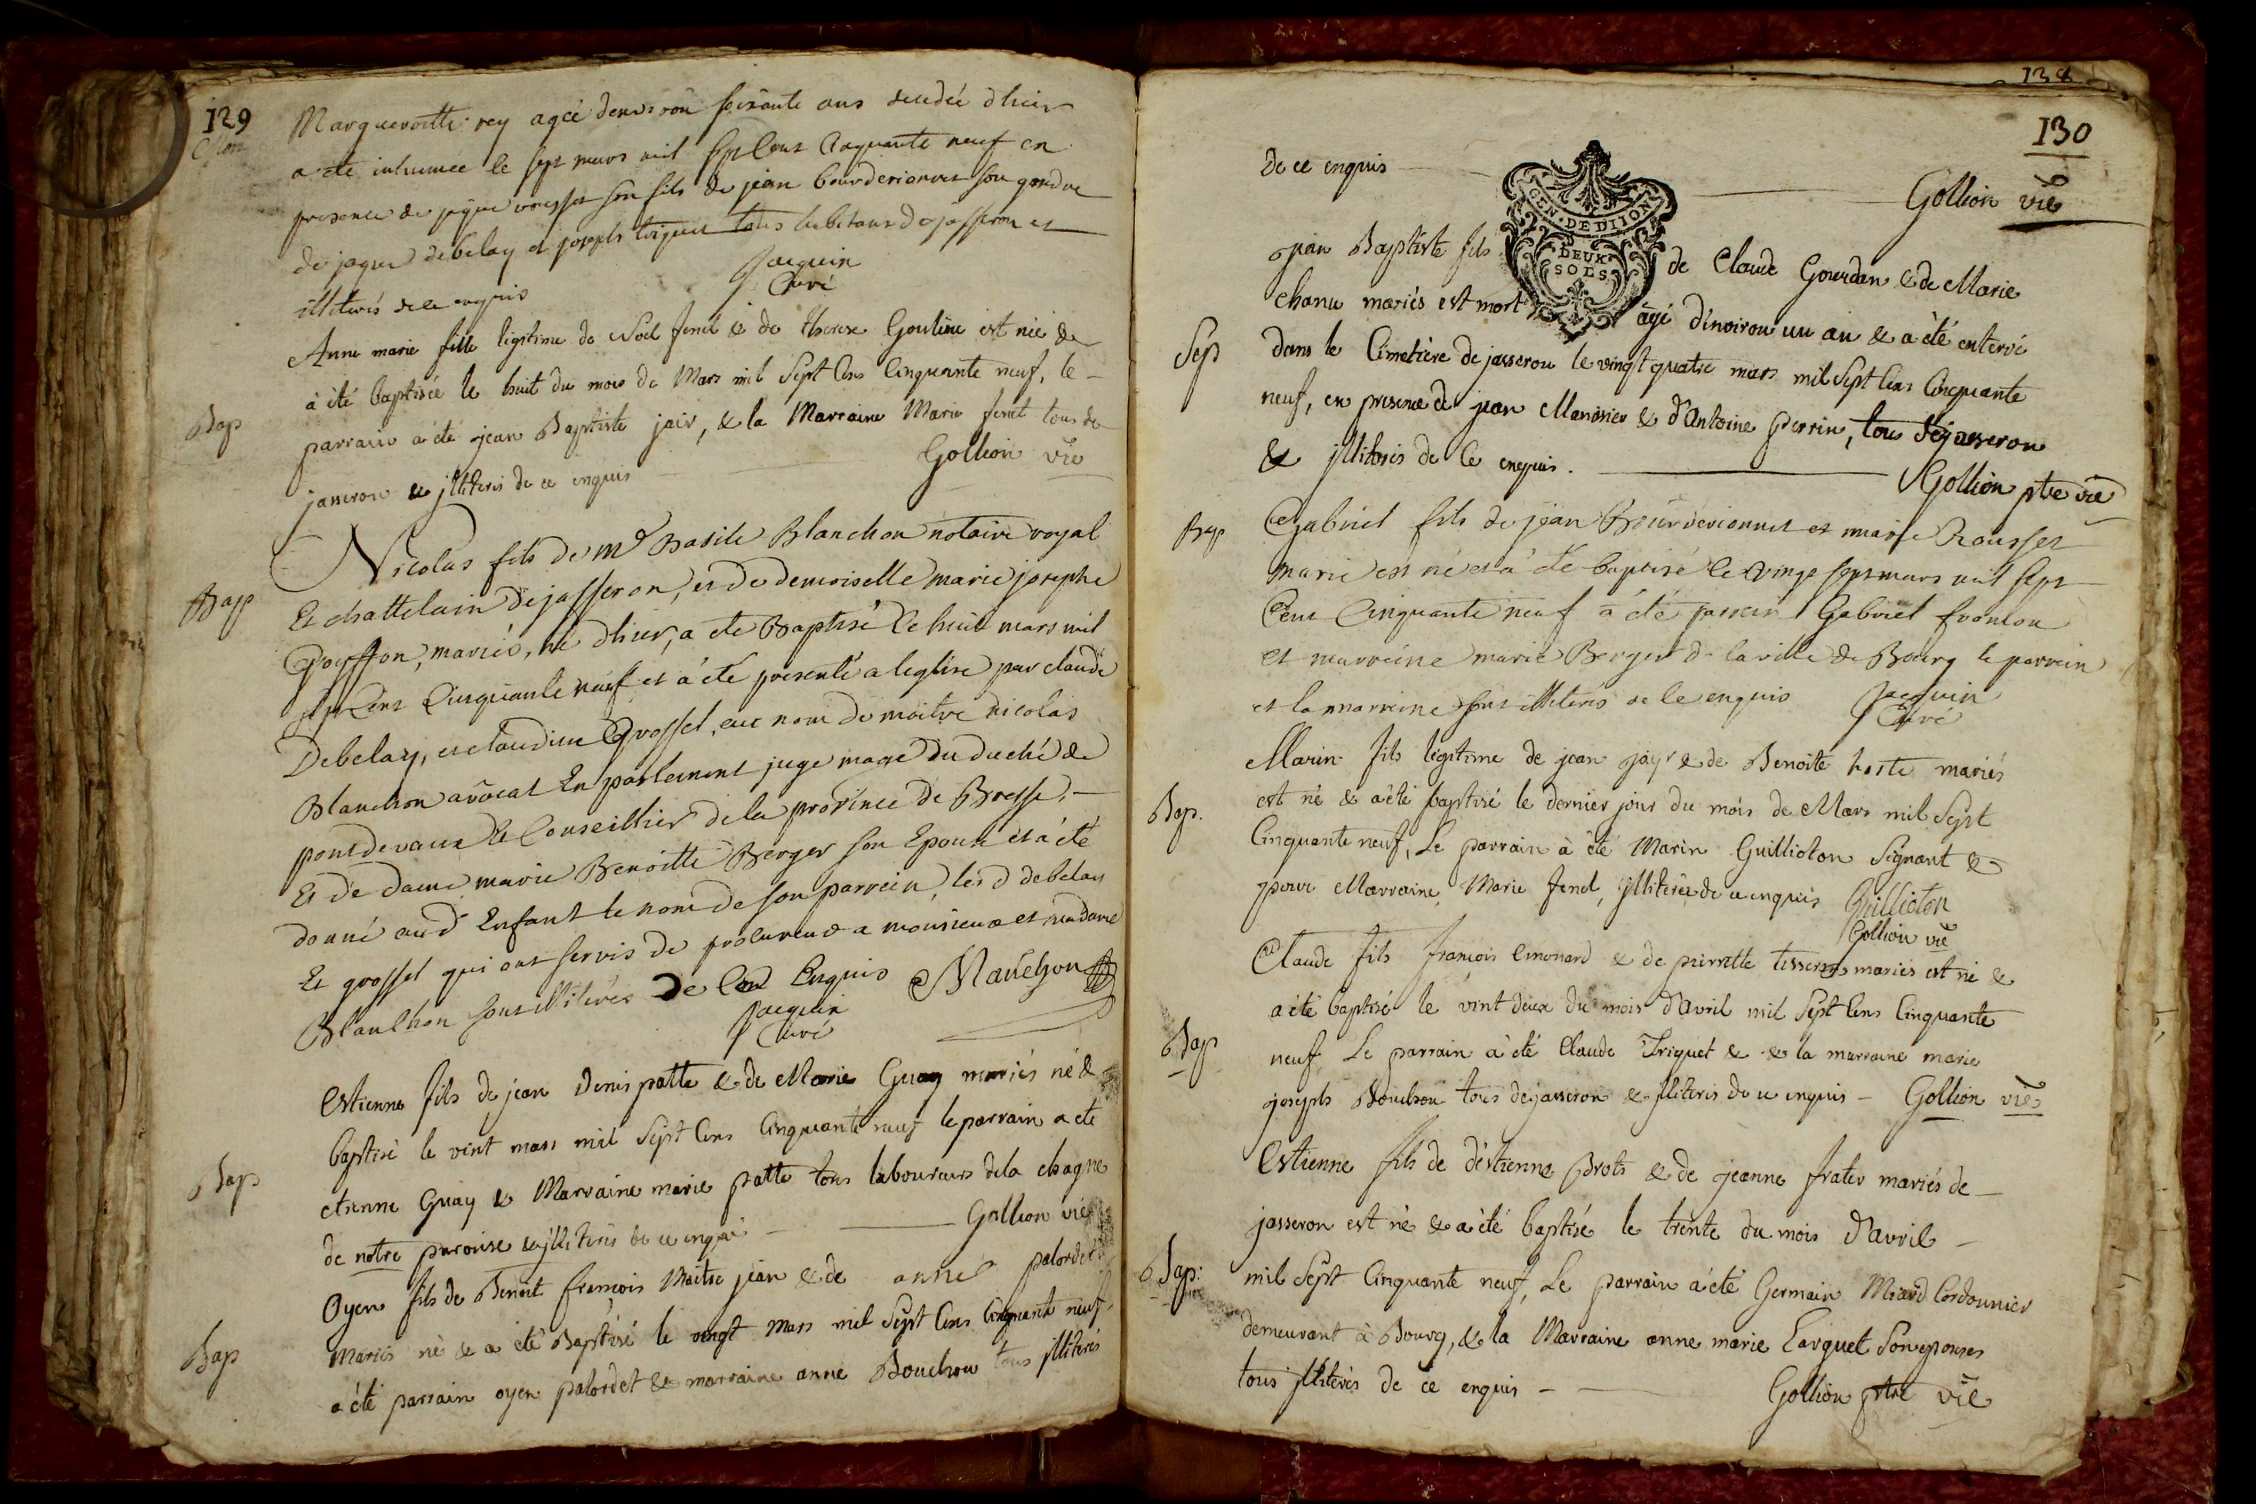 129
Marguerotte rey agée denviron soixante ans decedée d'hier
a eté inhumée le sept mars mil sept Cent Cinquante neuf en
presence de rousset son fils de jean bourderionnet son gendre
de jaques debelay et joseph tous habitans de jasseron et
illiterés de ce enquis
Jacquin
Curé
Bap
Anne marie fille legitime de Noël fenel & de therese Gouline est née &
à été baptisée le huit du mois de Mars mil Sept Cens Cinquante neuf, le -
parrain a été jean Baptiste jair, & la Marraine Marie fenel tous de
jasseron & jlliteris de ce enquis
Gollion vic
Bap
Nicolas fils de Me Basile Blanchon notaire royal
Et chattelain de jasseron, et de demoiselle marie josephe
Goyffon, mariés, né d'hier, a eté Baptisé le huit mars mil
sept Cent Cinquante neuf et à été presenté a leglise par claude
Debelay, et claudine Grosset, au nom de maitre nicolas
Blanchon avocat En parlement juge mage du duché de
pondevaux Et Conseillier de la province de Bresse, -
Et de dame marie Benoitte Berger son Epouse et à été
donné aud Enfant le nom de son parrein, lesd debelay
Et grosset qui ont servis de procureur a monsieur et madame
Blanchon sont illiterés De Ce Enquis Blanchon
Jacquin
Curé
Bap
Estienne fils de jean Denis patte & de Marie Guay mariés né &
baptisé le vint mars mil Sept Cens Cinquante neuf le parrain a eté
etienne Guay & Marraine marie patte tous laboureurs de la chagne
de notre paroisse & jlliteris de ce enquis
Gollion vic
Bap
Oyen fils de Benoit francois Maitre jean & de anne palordet
Mariés né & a été Baptisé le vingt Mars mil Sept Cens Cinquante neuf,
a été parrain oyen palordet & marraine anne Bouchou tous jlliterés
138
130
de ce enquis
Gollion vic
GEN · DE DIJON
DEUX
SOLS
Sep
jean Baptiste fils de Claude Gourdan & de Marie
chanu mariés est mort âgé d'environ un an & a été enterré
dans le Cimetière de jasseron le vingt quatre mars mil Sept Cens Cinquante
neuf, en presence de jean Manssier & d'Antoine perrin, tous de jasseron
& jlliteris de Ce enquis.
Gollion ptre vic
Bap
Gabriel fils de jean Bourderionnet et marie Rousset
marié est né et à été baptisé le vingt sept mars mil sept
Cent Cinquante neuf à été parrein Gabriel fronton
et marreine marie Berger de la ville de Bourg le parrein
et la marreine sont illiterés de ce enquis
Jacquin
Curé
Bap.
Marin fils légitime de jean jayr & de Benoite hoste mariés
est né & a été baptisé le dernier jour du mois de Mars mil Sept
Cinquante neuf, Le parrain à été Marin Guillioton Signant &
pour Marraine, Marie fenel, jlliterée de ce enquis Guillioton
Gollion vic
Bap
Claude fils francois Emonard & de pierrette tisserand mariés est né &
a été baptisé le vint deux du mois d'Avril mil Sept Cens Cinquante
neuf Le parrain à été Claude Triquet & & la marraine marie
joseph Bouchou tous de jasseron & jlliteris de ce enquis - Gollion vic
Bap:
Estienne fils de d'estienne Brots & de jeanne frater mariés de -
jasseron est né & a été baptisé le trente du mois d'avril -
mil Sept Cinquante neuf, Le parrain a été Germain Miard Cordonnier
demeurant à Bourg, & la Marraine anne marie Larguet Son epouse
tous jlliterés de ce enquis -
Gollion ptre vic